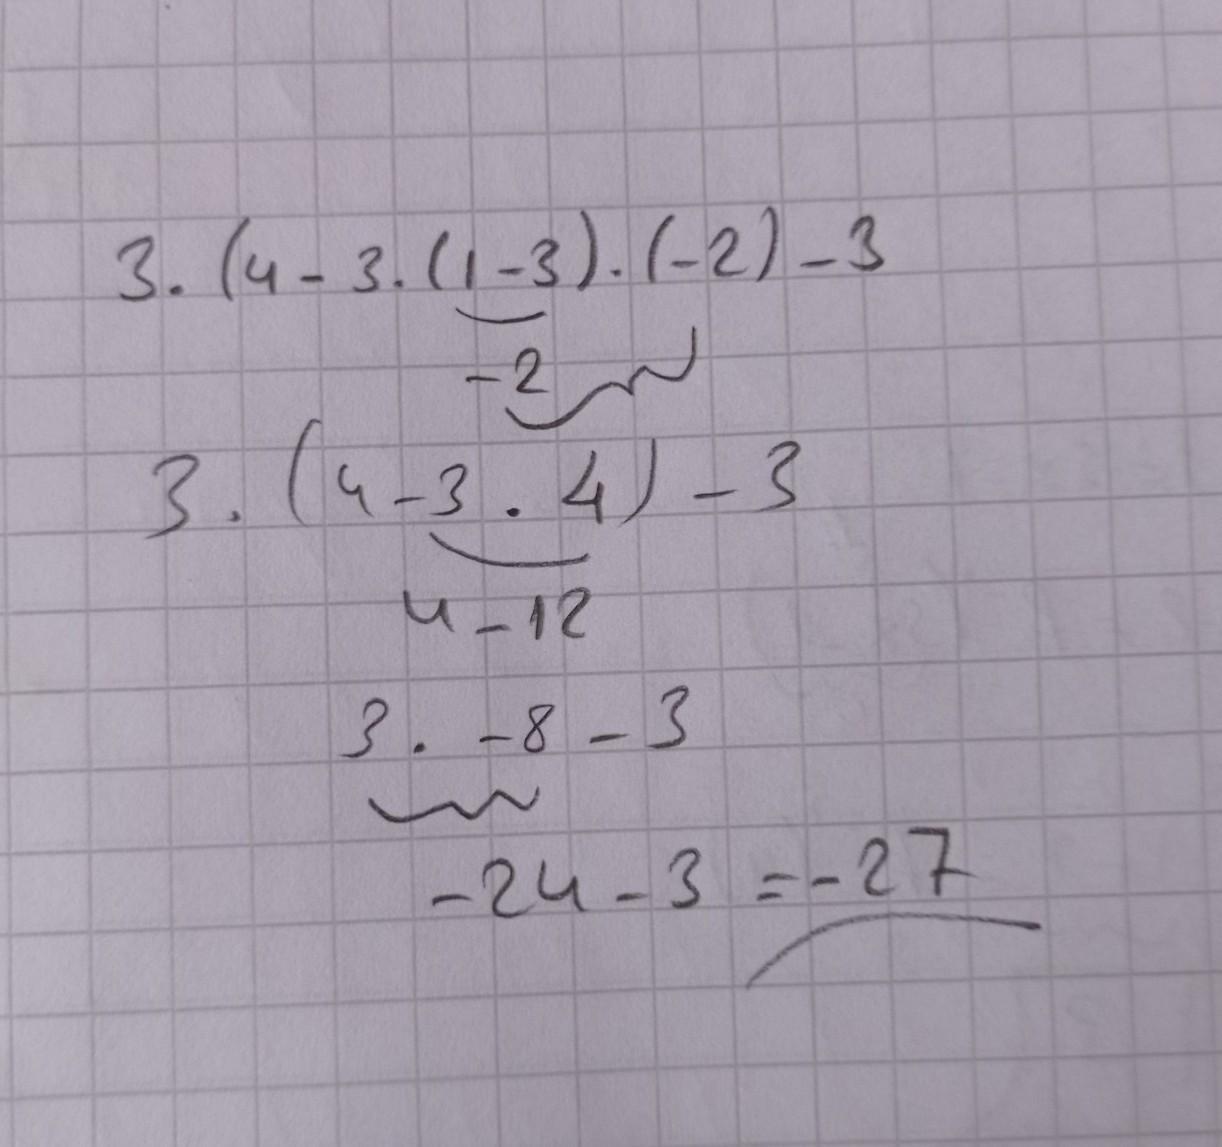 3.(4-3.(1-3).(-2)-3
-2
3.(4-3.4)-3
4-12
3. -8-3
-24-3=-27